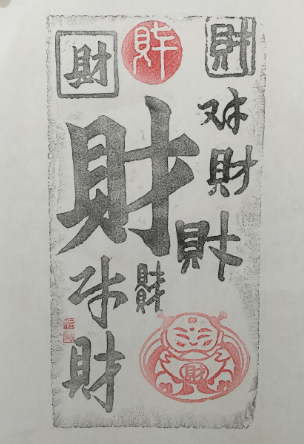 財
財
財
財
財
財
財
財
財
財
財